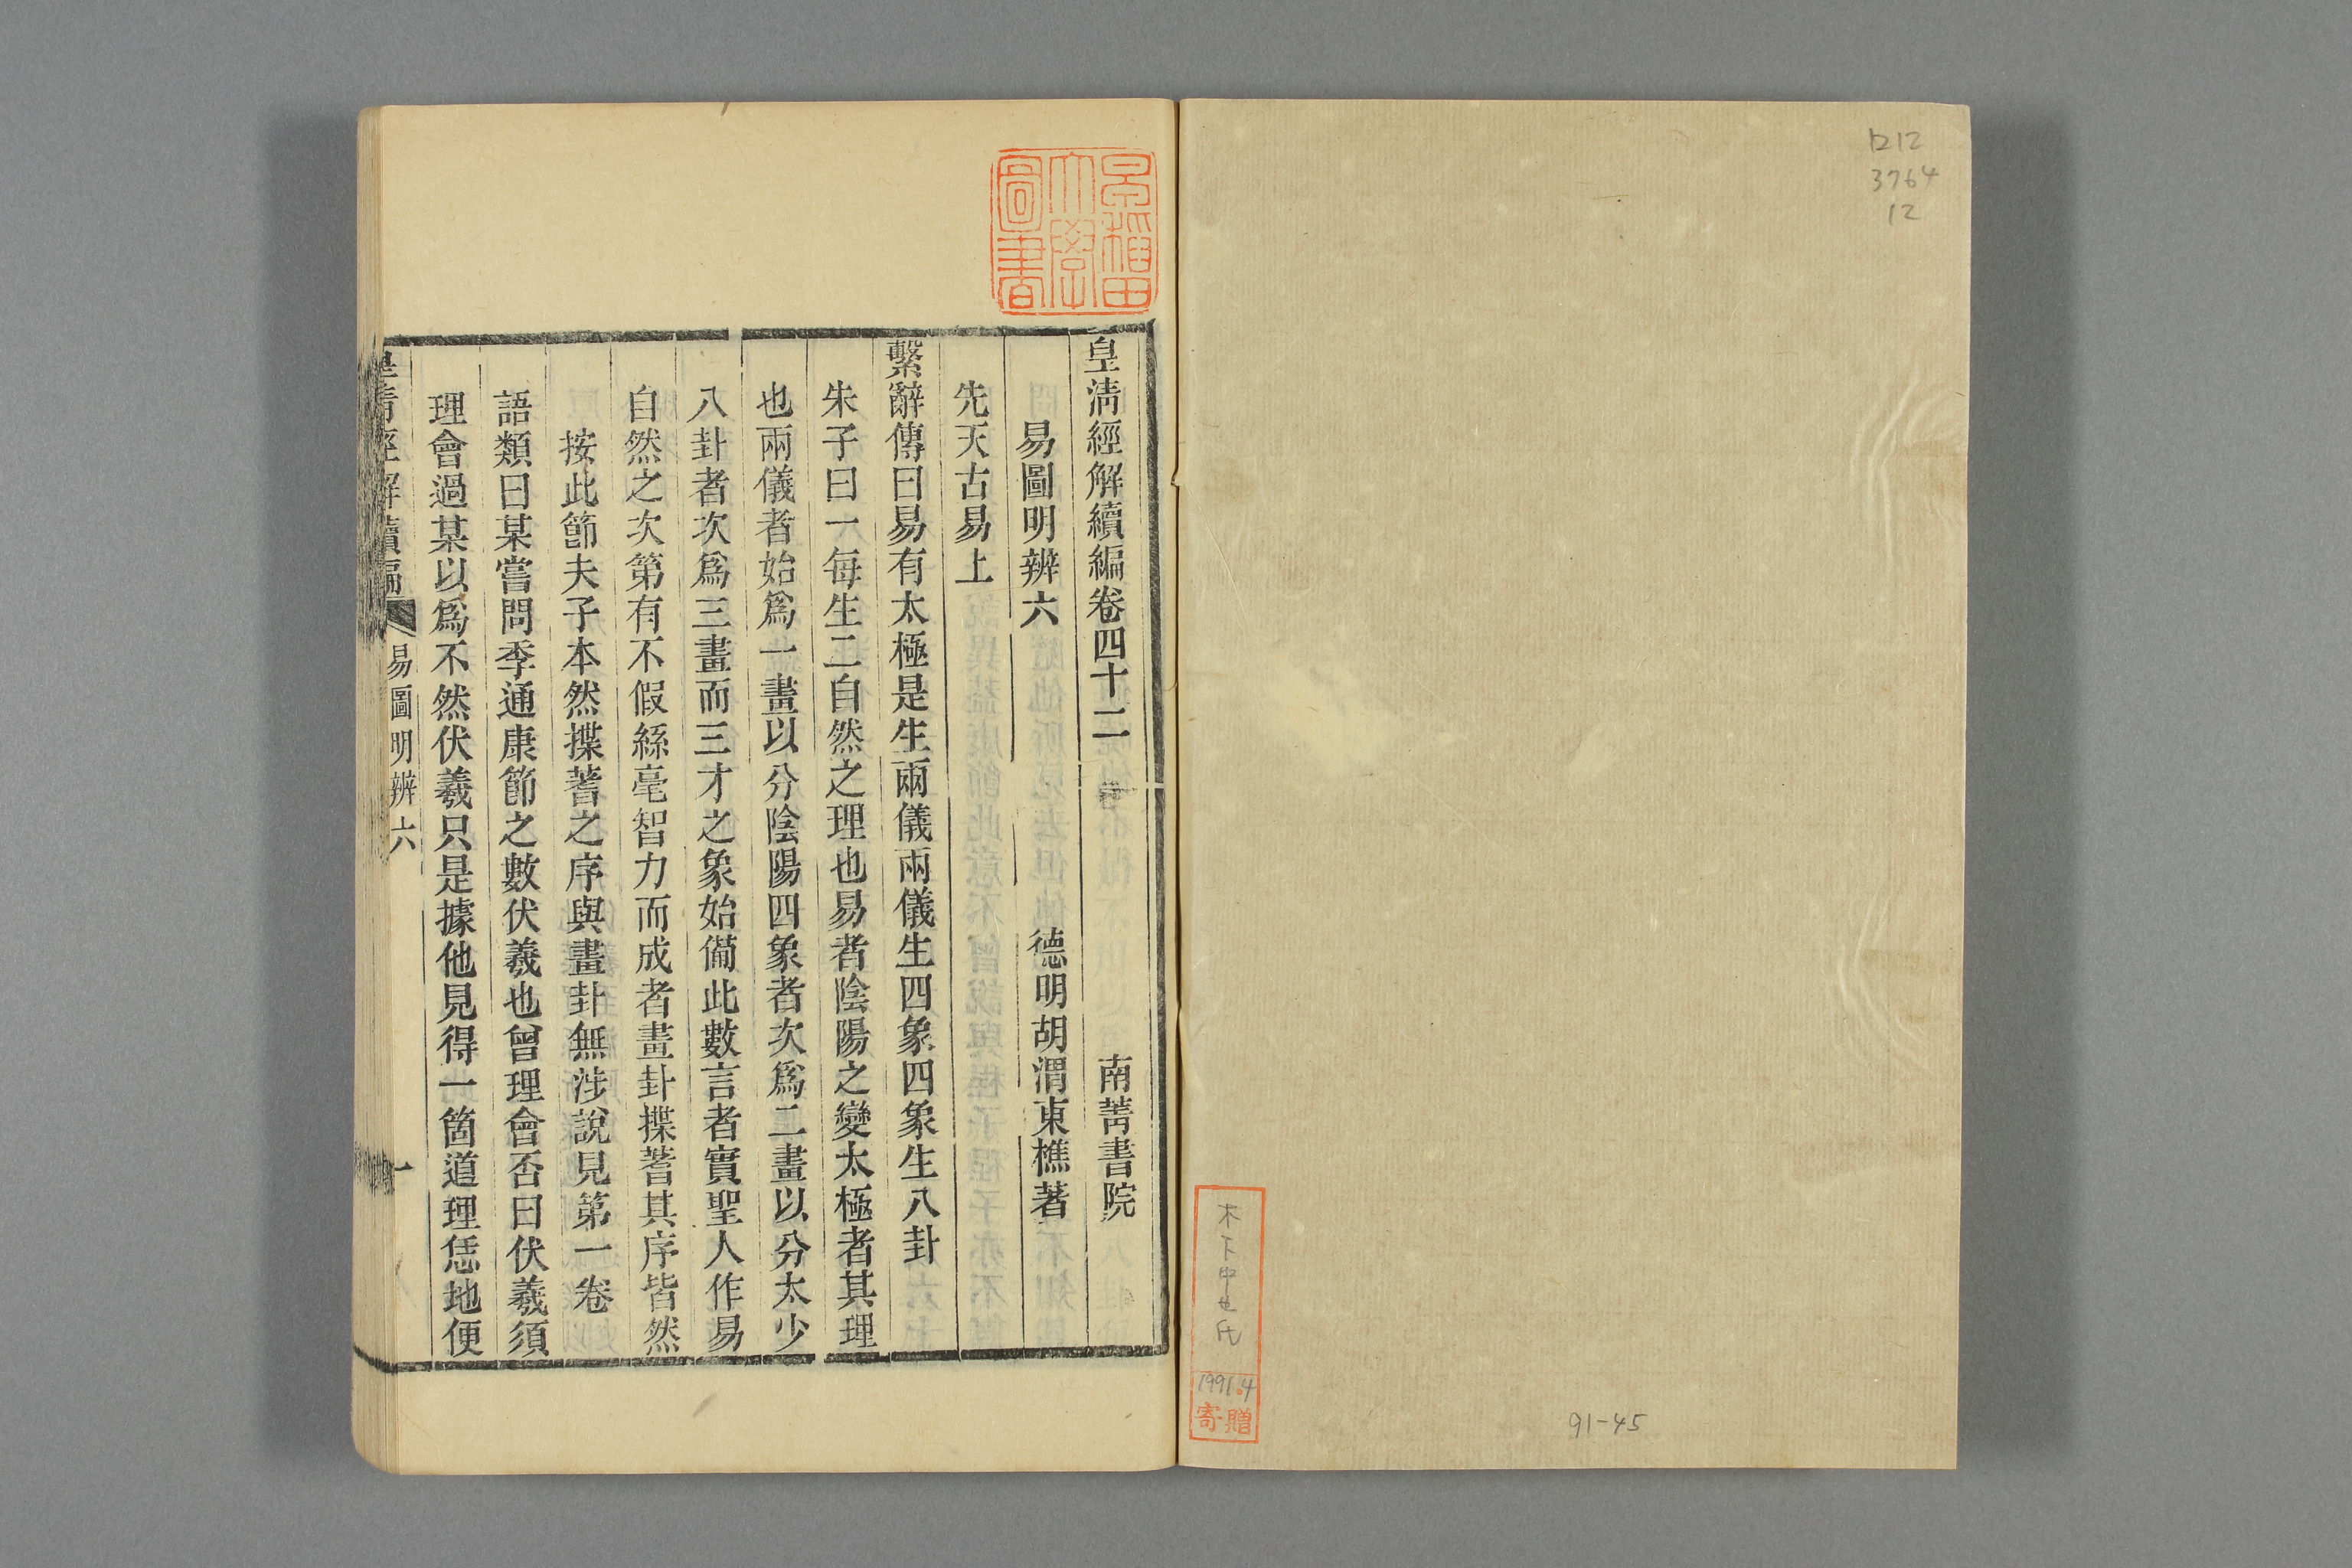 ロ12
3764
12
木下申也氏
1991.4
寄贈
91-45
早稲田
大學
圖書
皇清經解續編卷四十二 南菁書院
易圖明辨六 德明胡渭東樵著
先天古易上
繫辭傳曰易有太極是生兩儀兩儀生四象四象生八卦
朱子曰一每生二自然之理也易者陰陽之變太極者其理
也兩儀者始爲一畫以分陰陽四象者次爲二畫以分太少
八卦者次爲三畫而三才之象始備此數言者實聖人作易
自然之次第有不假絲毫智力而成者畫卦揲蓍其序皆然
按此節夫子本然揲蓍之序與畫卦無涉說見第一卷
語類曰某嘗問季通康節之數伏羲也曾理會否曰伏羲須
理會過某以爲不然伏羲只是據他見得一箇道理恁地便
皇清經解續編 易圖明辨六 一